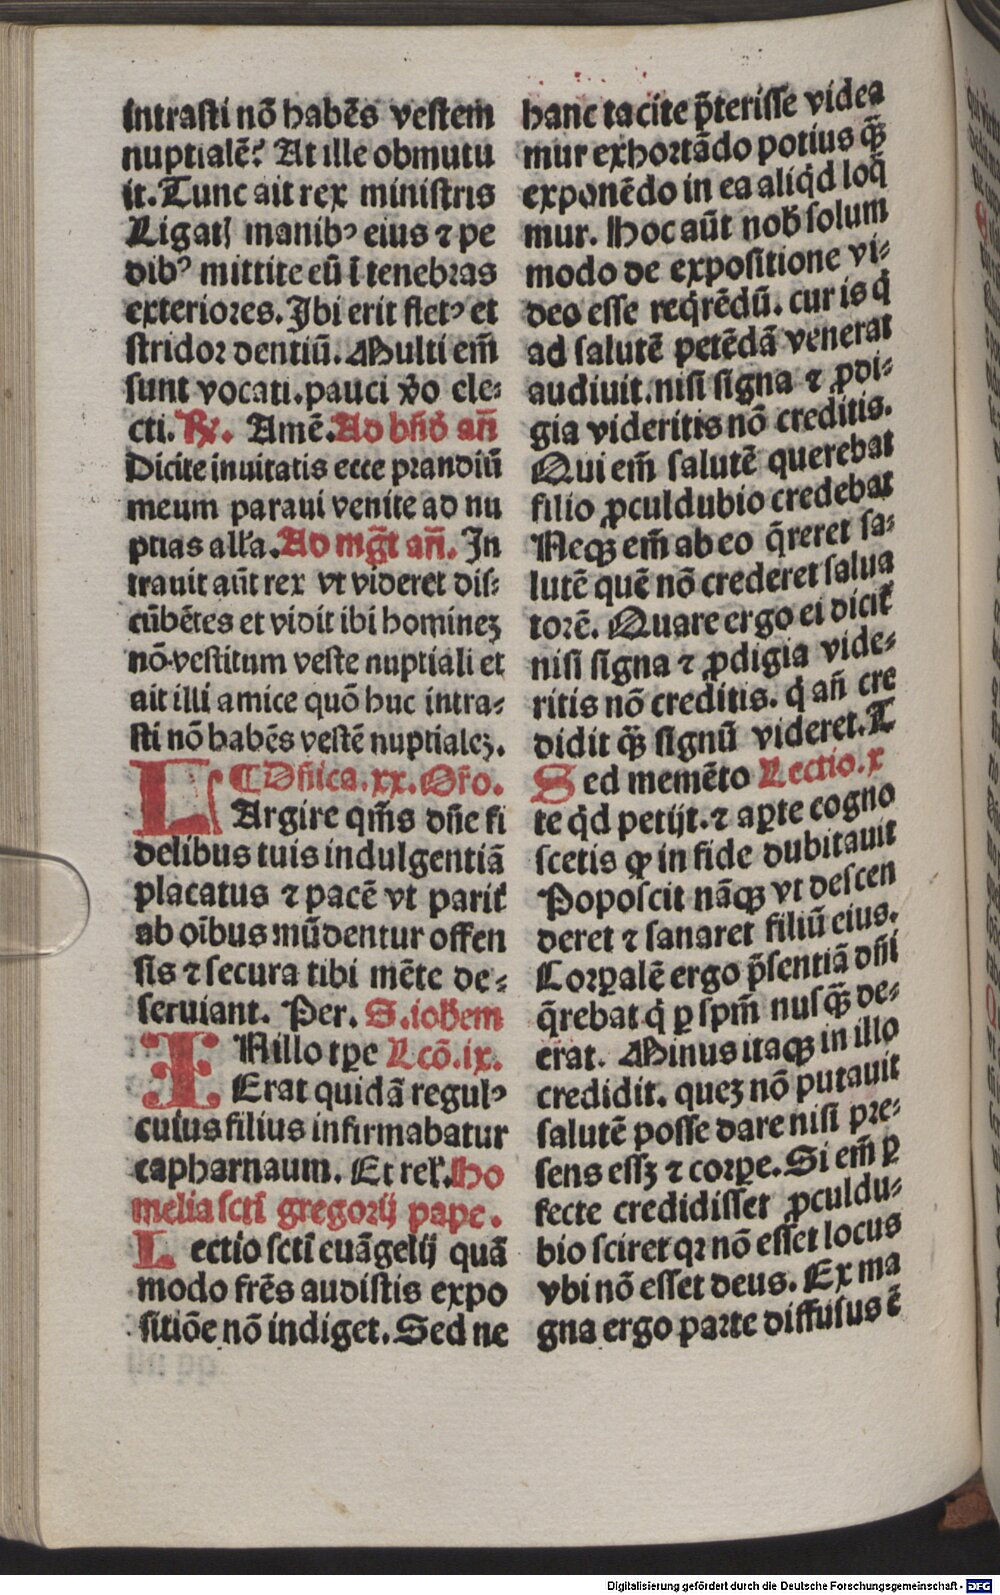 intrasti nō habēs vestem
nuptialē? At ille obmutu
it. Tunc ait rex ministris
Ligatꝭ manibꝰ eius ⁊ pe
dibꝰ mittite eū ī tenebras
exteriores. Ibi erit fletꝰ et
stridor dentiū. Multi em̄
sunt vocati. pauci v̄o ele-
cti. ℟. Amē. Ad bn̄d̄ an̄
Dicite inuitatis ecce prandiū
meum paraui venite ad nu
ptias all'a. Ad mg̅t an̄. In
trauit aūt rex vt videret dis-
cūbētes et vidit ibi hominez
nō vestitum veste nuptiali et
ait illi amice quō huc intra-
sti nō habēs vestē nuptialez.
¶ Dn̄ica. xx. Or̄o.
LArgire qm̄s dn̄e fi
delibus tuis indulgentiā
placatus ⁊ pacē vt parit̄
ab oībus mūdentur offen
sis ⁊ secura tibi mēte de-
seruiant. Per. S. ioh̄em
IN illo tꝑe Lcō. ix.
Erat quidā regulꝰ
cuius filius infirmabatur
capharnaum. Et rel̄. Ho
melia sctī gregorij pape.
Lectio sctī euāgelij quā
modo frēs audistis expo
sitiōe nō indiget. Sed ne
hanc tacite p̄terisse videa
mur exhortādo potius qꝫ̄
exponēdo in ea aliq̇d loq̄
mur. Hoc aūt nob̄ solum
modo de expositione vi-
deo esse req̇rēdū. cur is q̇
ad salutē petēdā venerat
audiuit. nisi signa ⁊ ꝓdi-
gia videritis nō creditis.
Qui em̄ salutē querebat
filio ꝓculdubio credebat
Neqꝫ em̄ ab eo q̄reret sa-
lutē quē nō crederet salua
torē. Quare ergo ei dicit̄
nisi signa ⁊ ꝓdigia vide-
ritis nō creditis. q̇ an̄ cre
didit qꝫ̄ signū videret. T
Sed memēto Lectio. x
te q̇d petijt. ⁊ aꝑte cogno
scetis ꝙ in fide dubitauit
Poposcit nāqꝫ vt descen
deret ⁊ sanaret filiū eius.
Corꝑalē ergo p̄sentiā dn̄i
q̄rebat q̇ ꝑ spm̄ nusqꝫ̄ de-
erat. Minus itaqꝫ in illo
credidit. quez nō putauit
salutē posse dare nisi pre-
sens essꝫ ⁊ corꝑe. Si em̄ ꝑ
fecte credidisset ꝓculdu-
bio sciret qꝛ nō esset locus
vbi nō esset deus. Ex ma
gna ergo parte diffusus ē